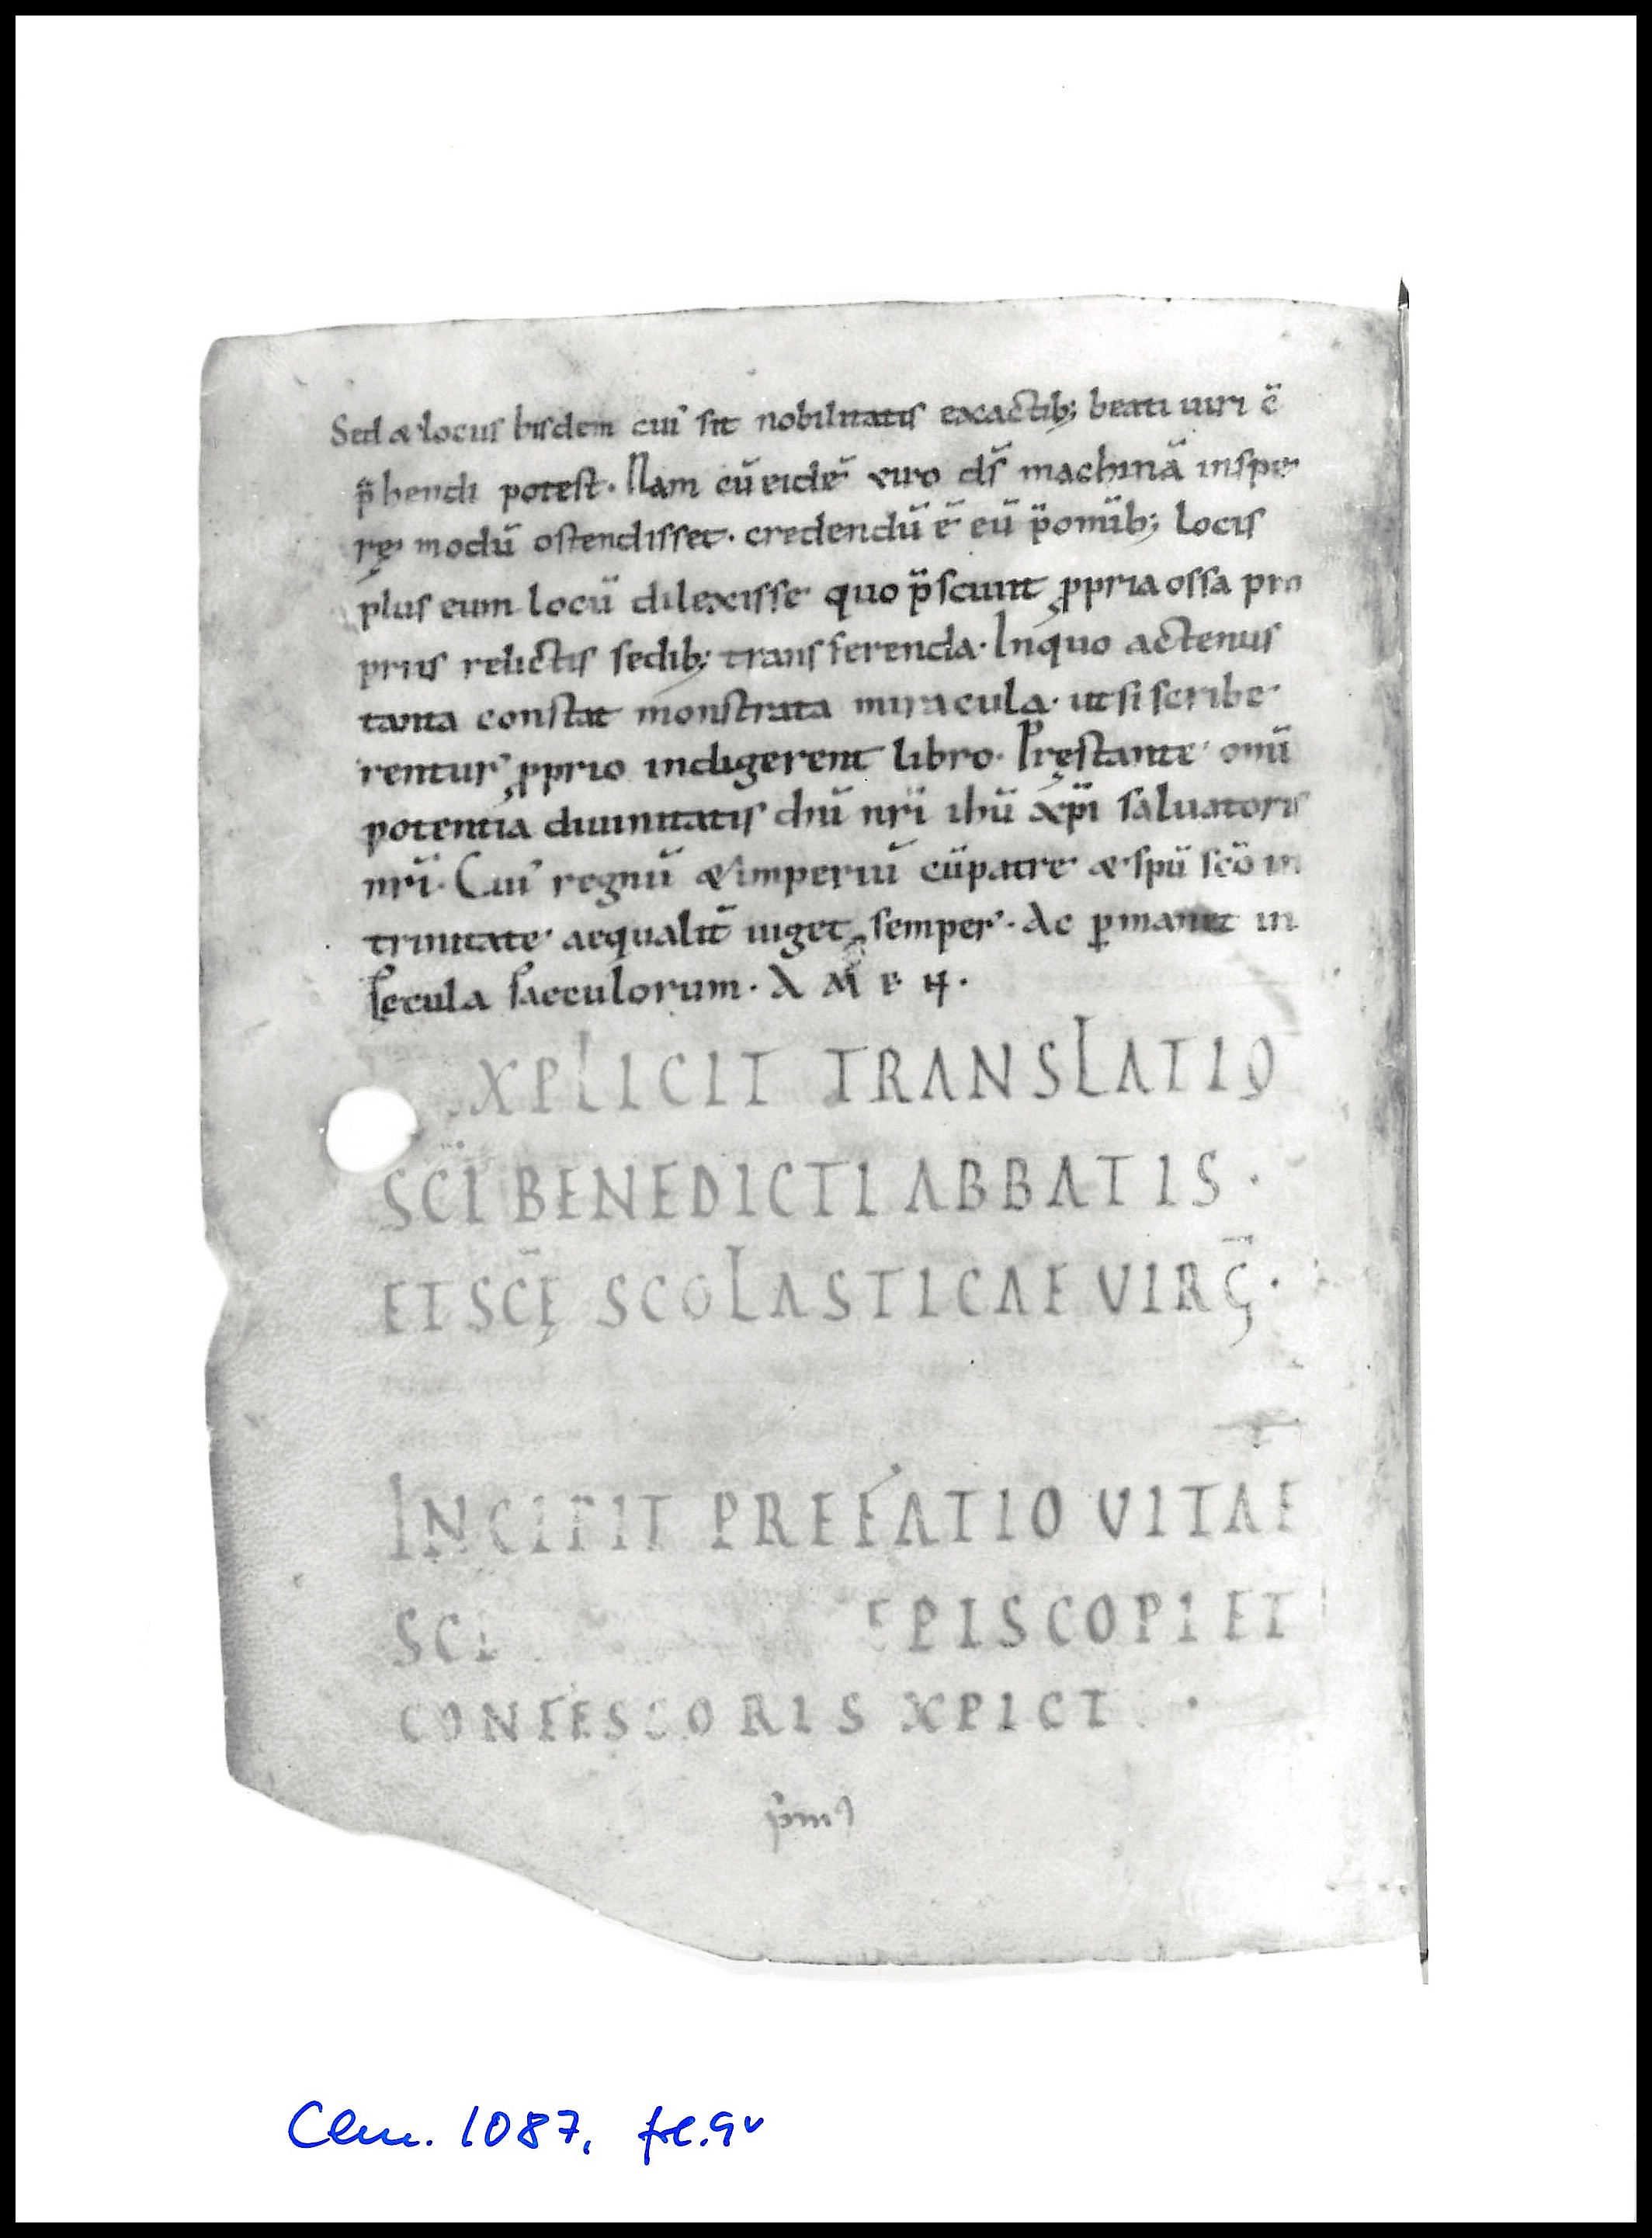 Sed & locus bisdem cui' sit nobilitatis exactib; beati uiri c̄
p̄hendi potest. Nam cū eidē uiro ds̄ machinā in spe
 re modū ostendisset. credendū ē eū p̄ omīb; locis
plus eum locū dilexisse quo p̄sciuit ꝓpria ossa pro
priis relictis sedib; transferenda. In quo actenus
tanta constat monstrata miracula. ut si scribe
rentur ꝓprio indigerent libro. Pręstante omī
potentia diuinitatis dn̄i nr̄i ihū xp̄i saluatoris
nr̄i. Cui' regnū & imperiū cū patre & spū scō in
trinitate aequalit̄ uiget semper. Ac ꝑmanet in
sęcula saeculorum. A M E N.
XPLICIT TRANSLATIO
SC̄I BENEDICTI ABBATIS.
ET SC̄Ę SCOLASTICAE VIRḠ.
INCIPIT PREFATIO VITAE
SCI EPISCOPI ET
CONFESSORIS XPICT
Clm. 1087, fol. 9v